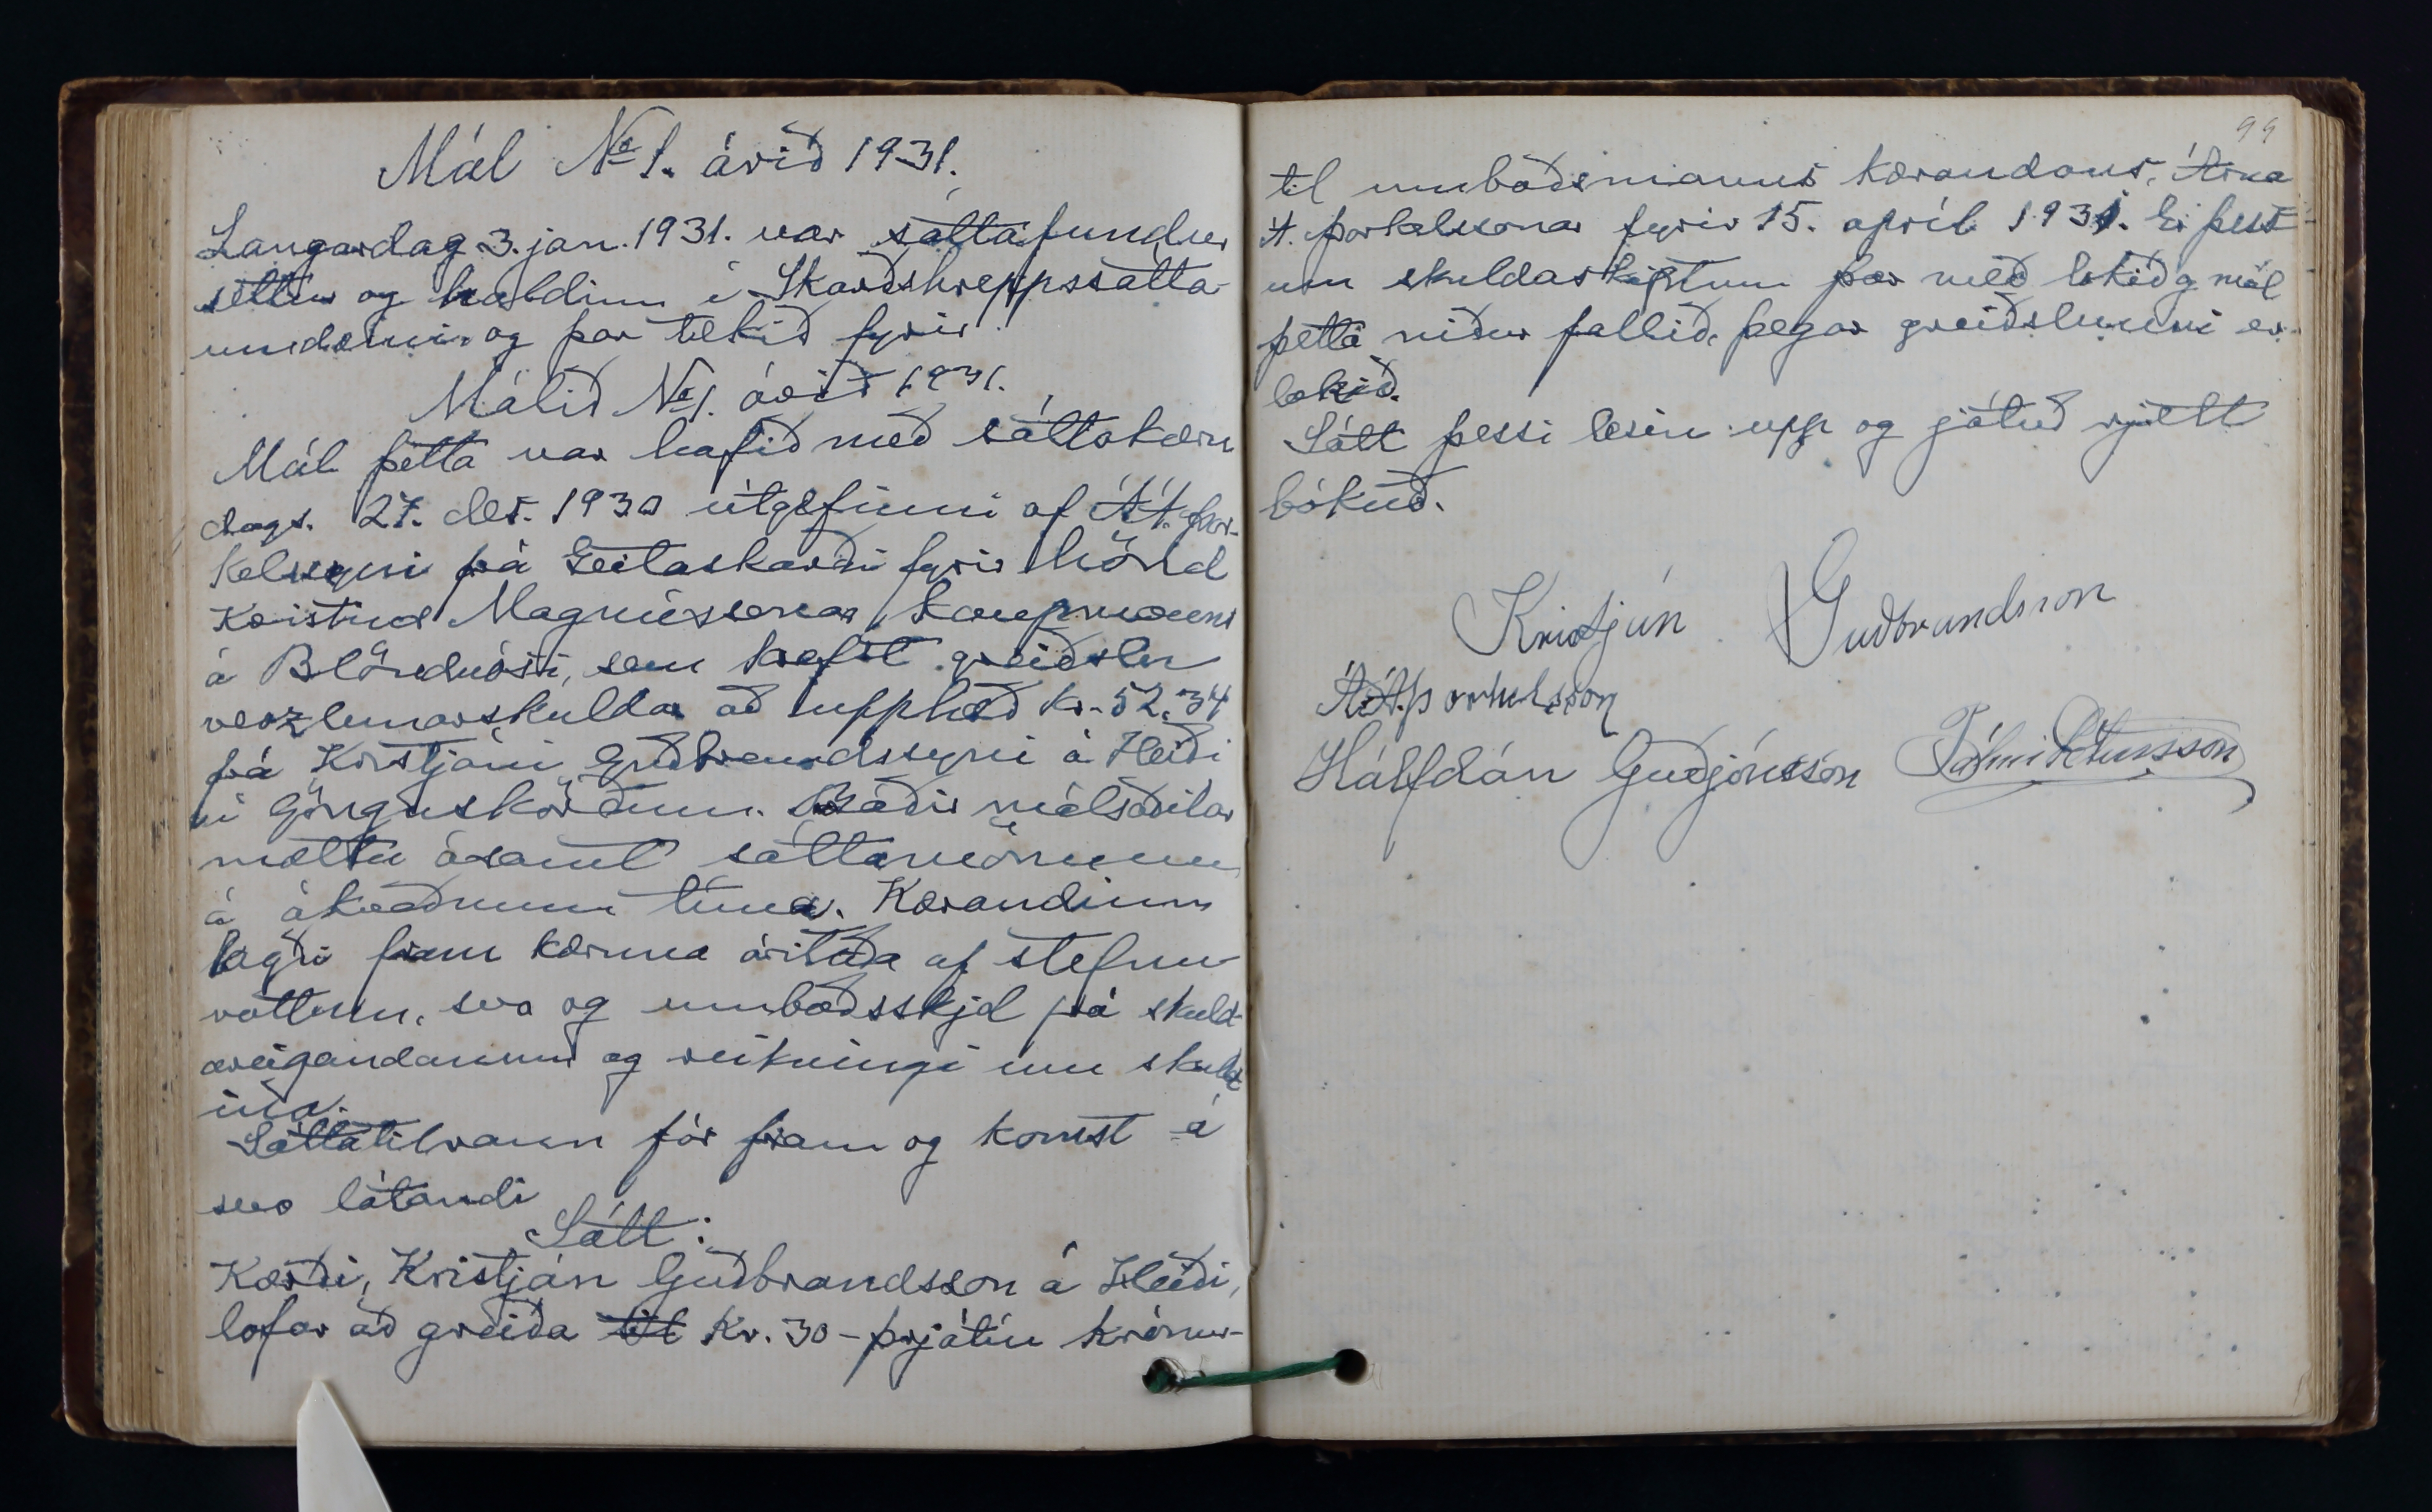 Mál No 1. árið 1931.
Laugardag 3. jan. 1931. var sáttafundur
settur og haldinn í Skarðshreppssátta-
umdæmi og þar tekið fyrir
Málið No 1. árið 1931.
Mál þetta var hafið með sáttakæru
dags. 27. des. 1930 útgefinni af Á.Á. Þor-
kelssyni frá Geitaskarði fyrir hönd
Kristins Magnússonar, kaupmanns
á Blönduósi, sem krefst greiðslu
verzlunarskuldar að upphæð kr. 52.34
frá Kristjáni Guðbrandssyni á Heiði
í Gönguskörðum. Báðir málsaðilar
mættu ásamt sáttamönnum
á ákveðnum tíma. Kærandinn
lagði fram kæruna áritaða af stefnu-
vottum, svo og umboðsskjal frá skuld-
areigandanum og reikningi um skuld
ina.
Sáttatilraun fór fram og komst á
svo látandi
Sátt:
Kærði, Kristján Guðbrandsson á Heiði,
lofar að greiða til Kr. 30 - þrjátíu krónur -
99
til umboðsmanns kærandans, Árna
Á. Þorkelssonar fyrir 15. apríl 1931. Er þess-
um skuldaskiptum þar með lokið og mál
þetta niður fallið, þegar greiðslunni er
lokið.
Sátt þessi lesin upp og játuð rjett
bókuð.
Kristján Guðbrandsson
Á.Á. Þorkelsson
Hálfdán Guðjónsson Pálmi Pétursson